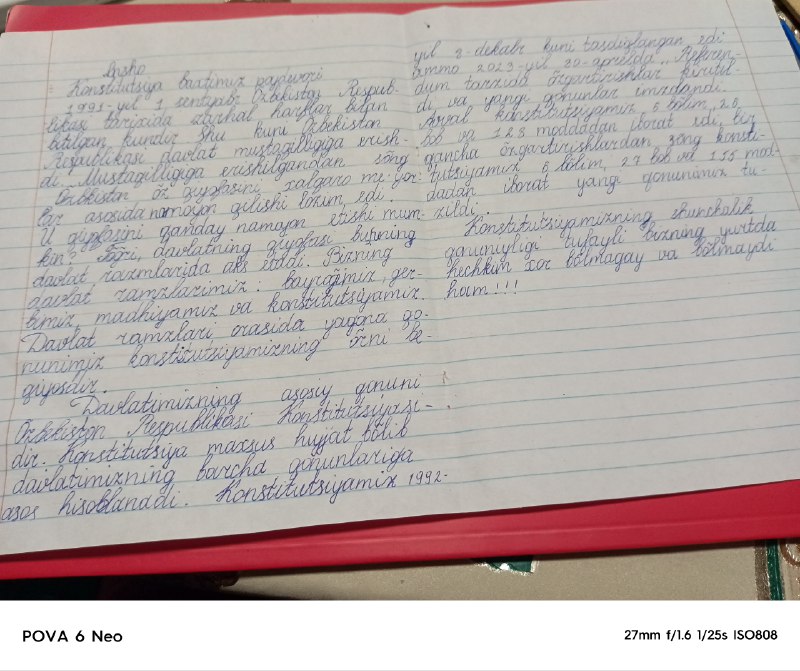 Insho
Konstitutsiya baxtimiz poydevori
1991-yil 1 sentyabr Ozbekiston Respub-
likasi tarixida zarhal harflar bilan
bitilgan kundir. Shu kuni Ozbekiston
Respublikasi davlat mustaqilligiga erish-
di. Mustaqilligiga erishilgandan song
Ozbekiston öz qiyofasini xalqaro me'yor-
lar asosida namoyon qilishi lozim edi.
U qiyofasini qanday namoyon etishi mum-
kin? Togri, davlatning qiyofasi buning
davlat ramzlarida aks etadi. Bizning
davlat ramzlarimiz: bayroģimiz, ger-
bimiz, madhiyamiz va konstitutsiyamiz.
Davlat ramzlari orasida yagona qo-
nunimiz konstitutsiyamizning örni be-
qiyosdir.
Davlatimizning asosiy qonuni
Ozbekiston Respublikasi Konstitutsiyasi-
dir. Konstitutsiya maxsus hujjat bölib
davlatimizning barcha qonunlariga
asos hisoblanadi. Konstitutsiyamiz 1992-
yil 8-dekabr kuni tasdiqlangan edi
ammo 2023-yil 30-aprelda "Referen-
dum tarzida özgartirishlar kiritil-
di va yangi qonunlar imzolandi.
Avval konstitutsiyamiz 6 bölim, 26
bob va 128 moddadan iborat edi, bir
qancha özgartirishlardan song konsti-
tutsiyamiz 6 bölim, 27 bob va 155 mod-
dadan iborat yangi qonunimiz tu-
zildi.
Konstitutsiyamizning shunchalik
qonuniyligi tufayli bizning yurtda
hechkim xor bölmagay va bölmaydi
ham!!!
POVA 6 Neo
27mm f/1.6 1/25s ISO808